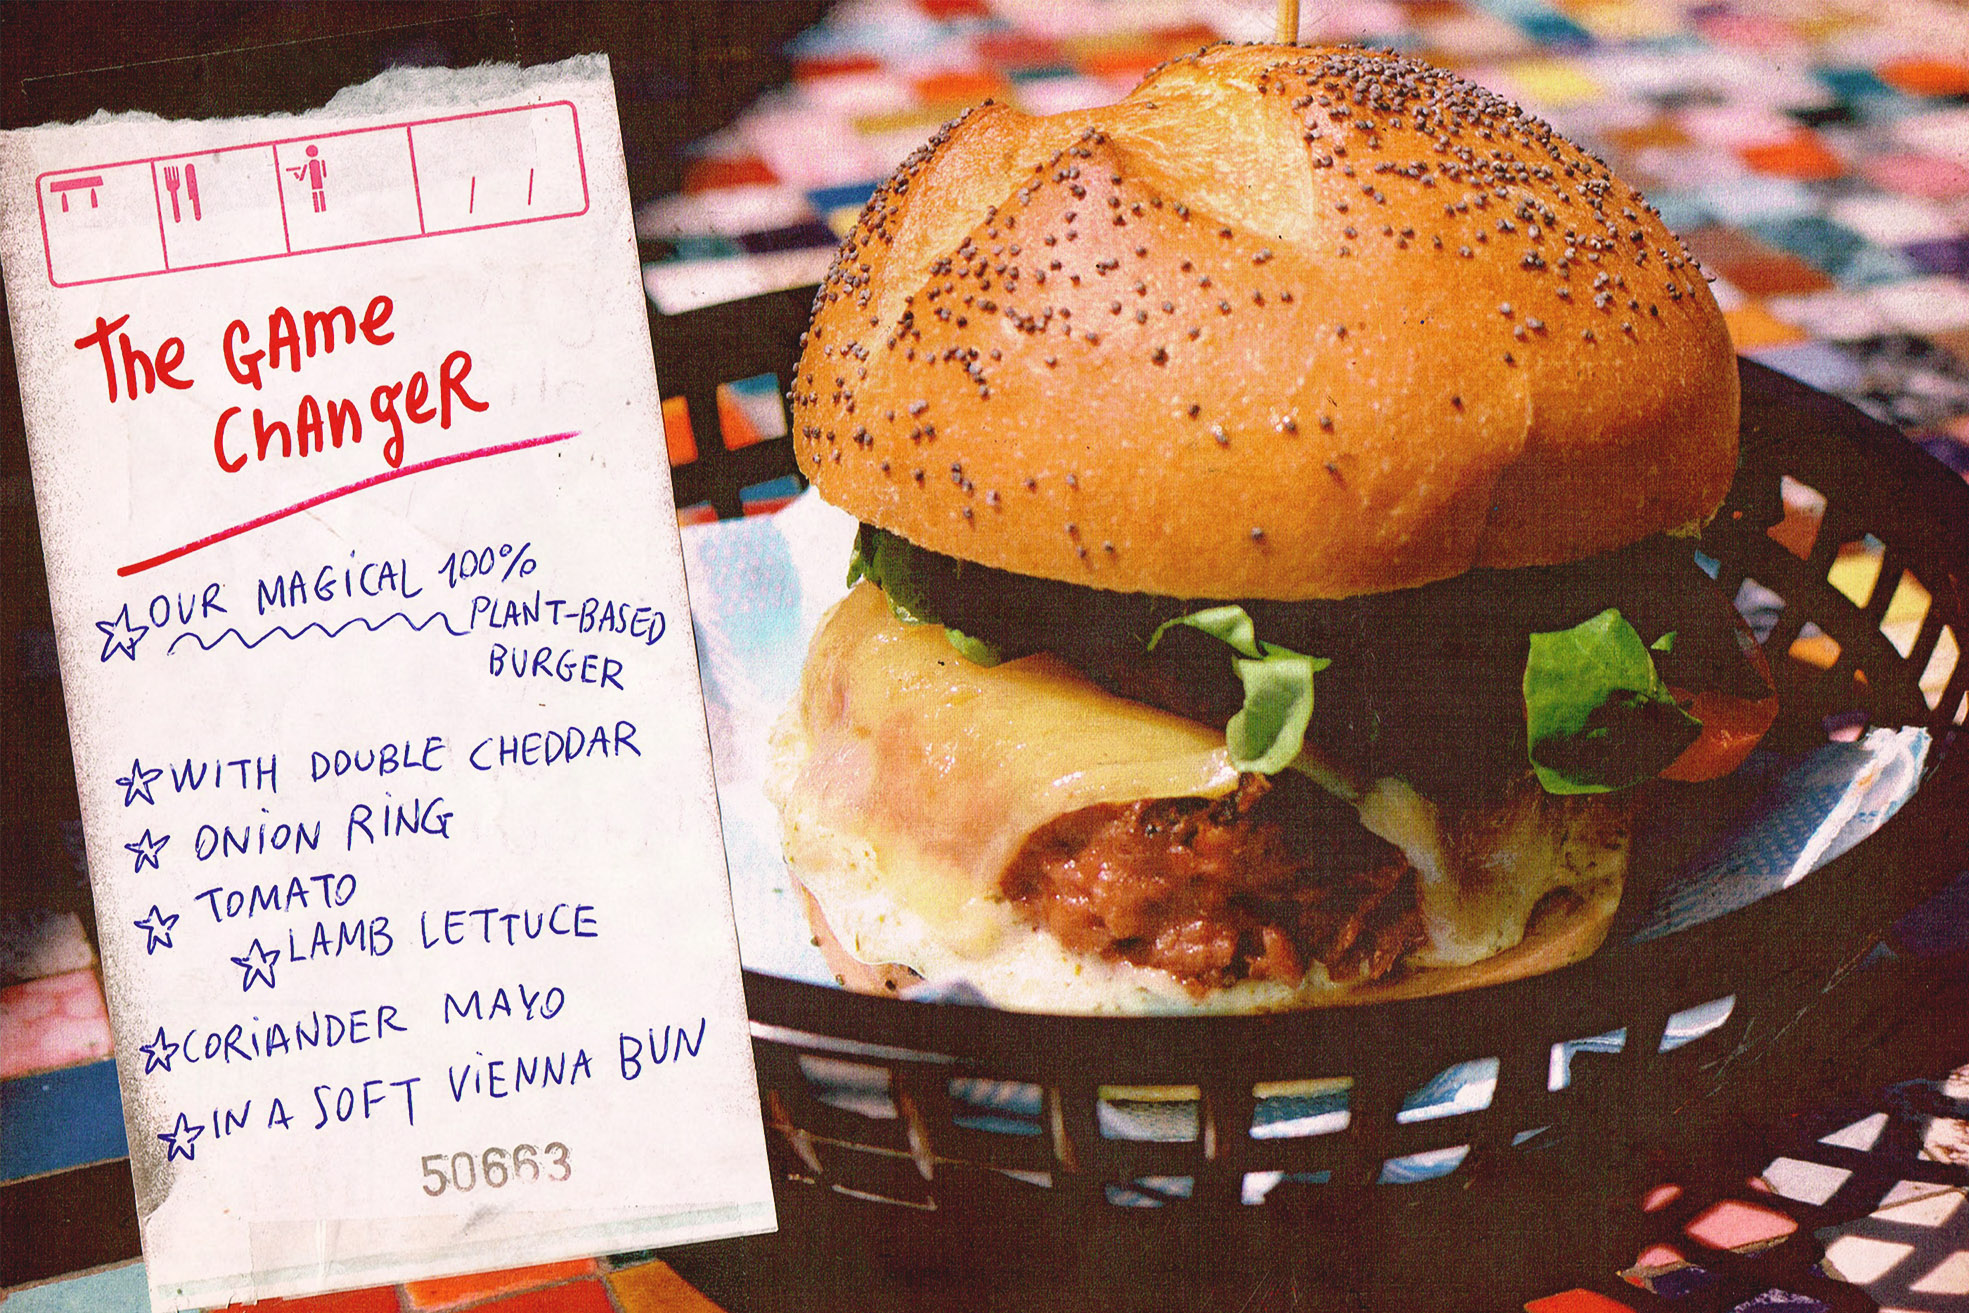 The GAme
ChAngeR
OUR MAGiCAL 100%
PLANT-BASED
BURGER
WITH DOUBLE CHEDDAR
ONiON RiNG
TOMATO
LAMB LETTUCE
CORiANDER MAYO
IN A SOFT ViENNA BUN
50663